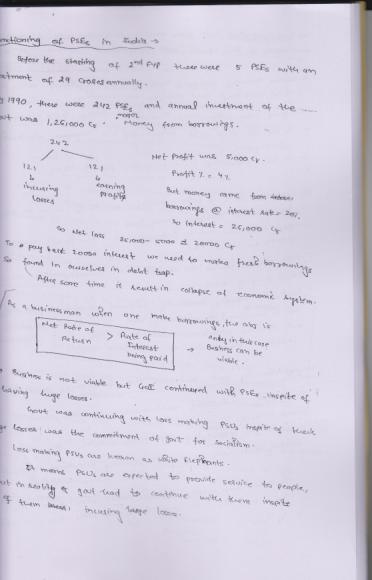 nctioning of PSEs in India →
Before the starting of 2nd FYP there were 5 PSEs with an
estment of 29 crores annually.
y 1990, there were 242 PSEs and annual investment of the
vt was 1,25,000 Cr. Major Money from borrowings.
242
121 121
incurring losses
earning profits
Net profit was 5,000 Cr.
Profit % = 4%
But money came from
borrowings @ interest rate = 20%
So interest = 25,000 Cr
So Net loss 25,000 - 5000 = 20000 Cr
To pay back 20000 interest we need to make fresh borrowings
So found in ourselves in debt trap.
After some time it result in collapse of economic system.
As a businessman when one make borrowings, two is
Net Rate of Return > Rate of Interest being paid
→ only in this case Business can be viable.
Business is not viable but GoI continued with PSEs inspite of
having huge losses.
Govt was continuing with loss making PSUs inspite of their
ge losses was the commitment of govt for socialism.
Loss making PSUs are known as White Elephants.
It means PSUs are expected to provide service to people,
ut in reality govt had to continue with them inspite
of them incurring large losses.